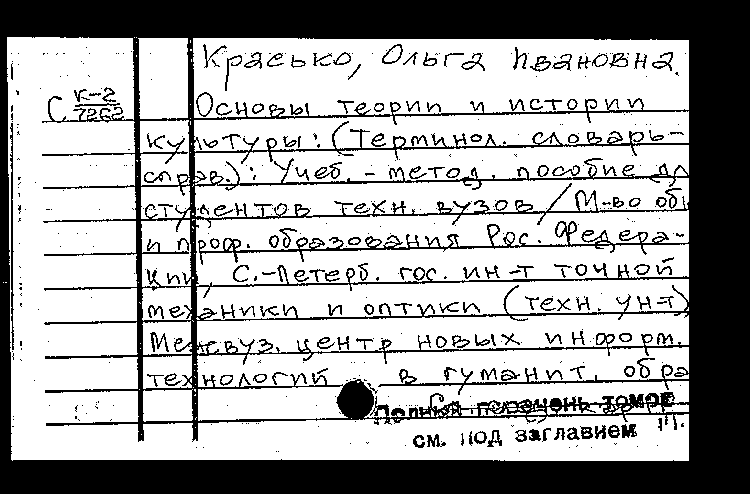 Красько, Ольга Ивановна.
С К-2
7262
Основы теории и истории
культуры: (Терминол. словарь-
справ.): Учеб.-метод. пособие дл
студентов техн. вузов / М-во общ
и проф. образования Рос. Федера-
ции, С.-Петерб. гос. ин-т точной
механики и оптики (техн. ун-т),
Межвуз. центр новых информ.
технологий в гуманит. обра
Полный перечень томов
см. под заглавием